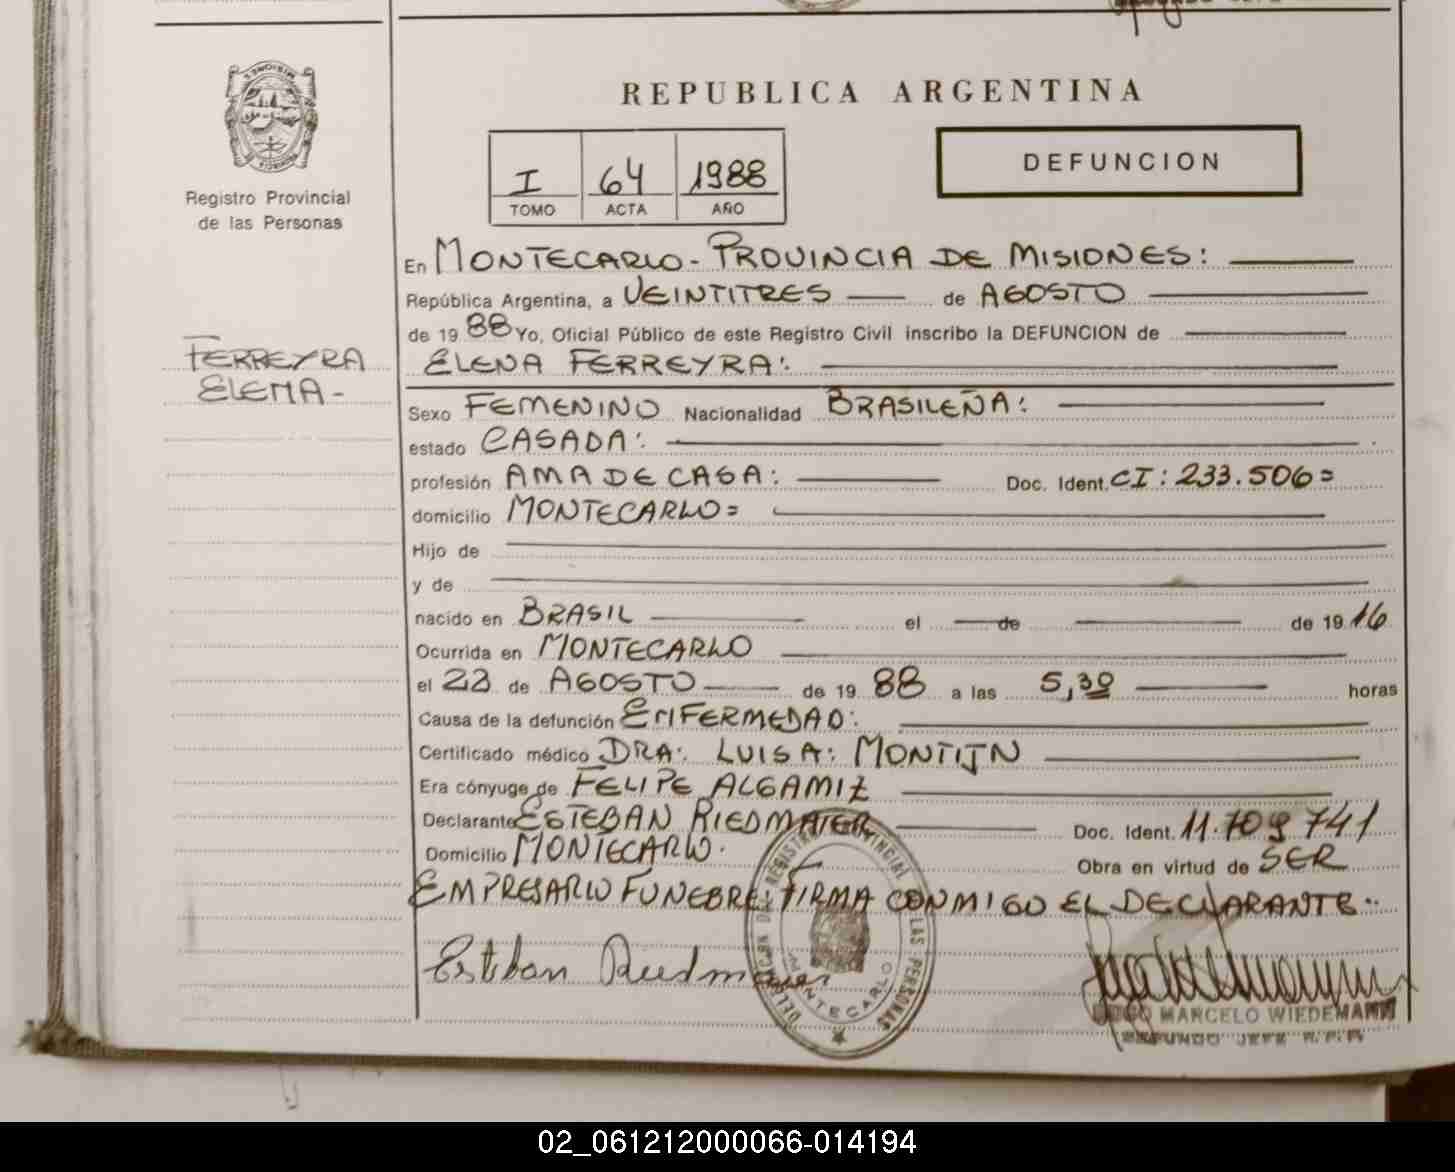 REPUBLICA ARGENTINA
MISIONES
Registro Provincial
de las Personas
I 64 1988
TOMO ACTA AÑO
DEFUNCION
FERREYRA
ELENA-
En MONTECARLO- PROVINCIA DE MISIONES:
República Argentina, a VEINTITRES de AGOSTO
de 1988 Yo, Oficial Público de este Registro Civil inscribo la DEFUNCION de
ELENA FERREYRA:
Sexo FEMENINO Nacionalidad BRASILEÑA:
estado CASADA:
profesión AMA DE CASA: Doc. Ident. CI: 233.506=
domicilio MONTECARLO=
Hijo de
y de
nacido en BRASIL el de de 1916
Ocurrida en MONTECARLO
el 23 de AGOSTO de 1988 a las 5,30 horas
Causa de la defunción ENFERMEDAD:
Certificado médico DRA: LUISA: MONTIJN
Era cónyuge de FELIPE ALGAMIZ
Declarante ESTEBAN RIEDMAIER Doc. Ident. 11.709.741
Domicilio MONTECARLO. Obra en virtud de SER
EMPRESARIO FUNEBRE: FIRMA CONMIGO EL DECLARANTE..
Esteban Riedmaier
DELEGACION DEL REGISTRO PROVINCIAL DE LAS PERSONAS
MONTECARLO
MARCELO WIEDEMANN
SEGUNDO JEFE R.P.P.
02_061212000066-014194